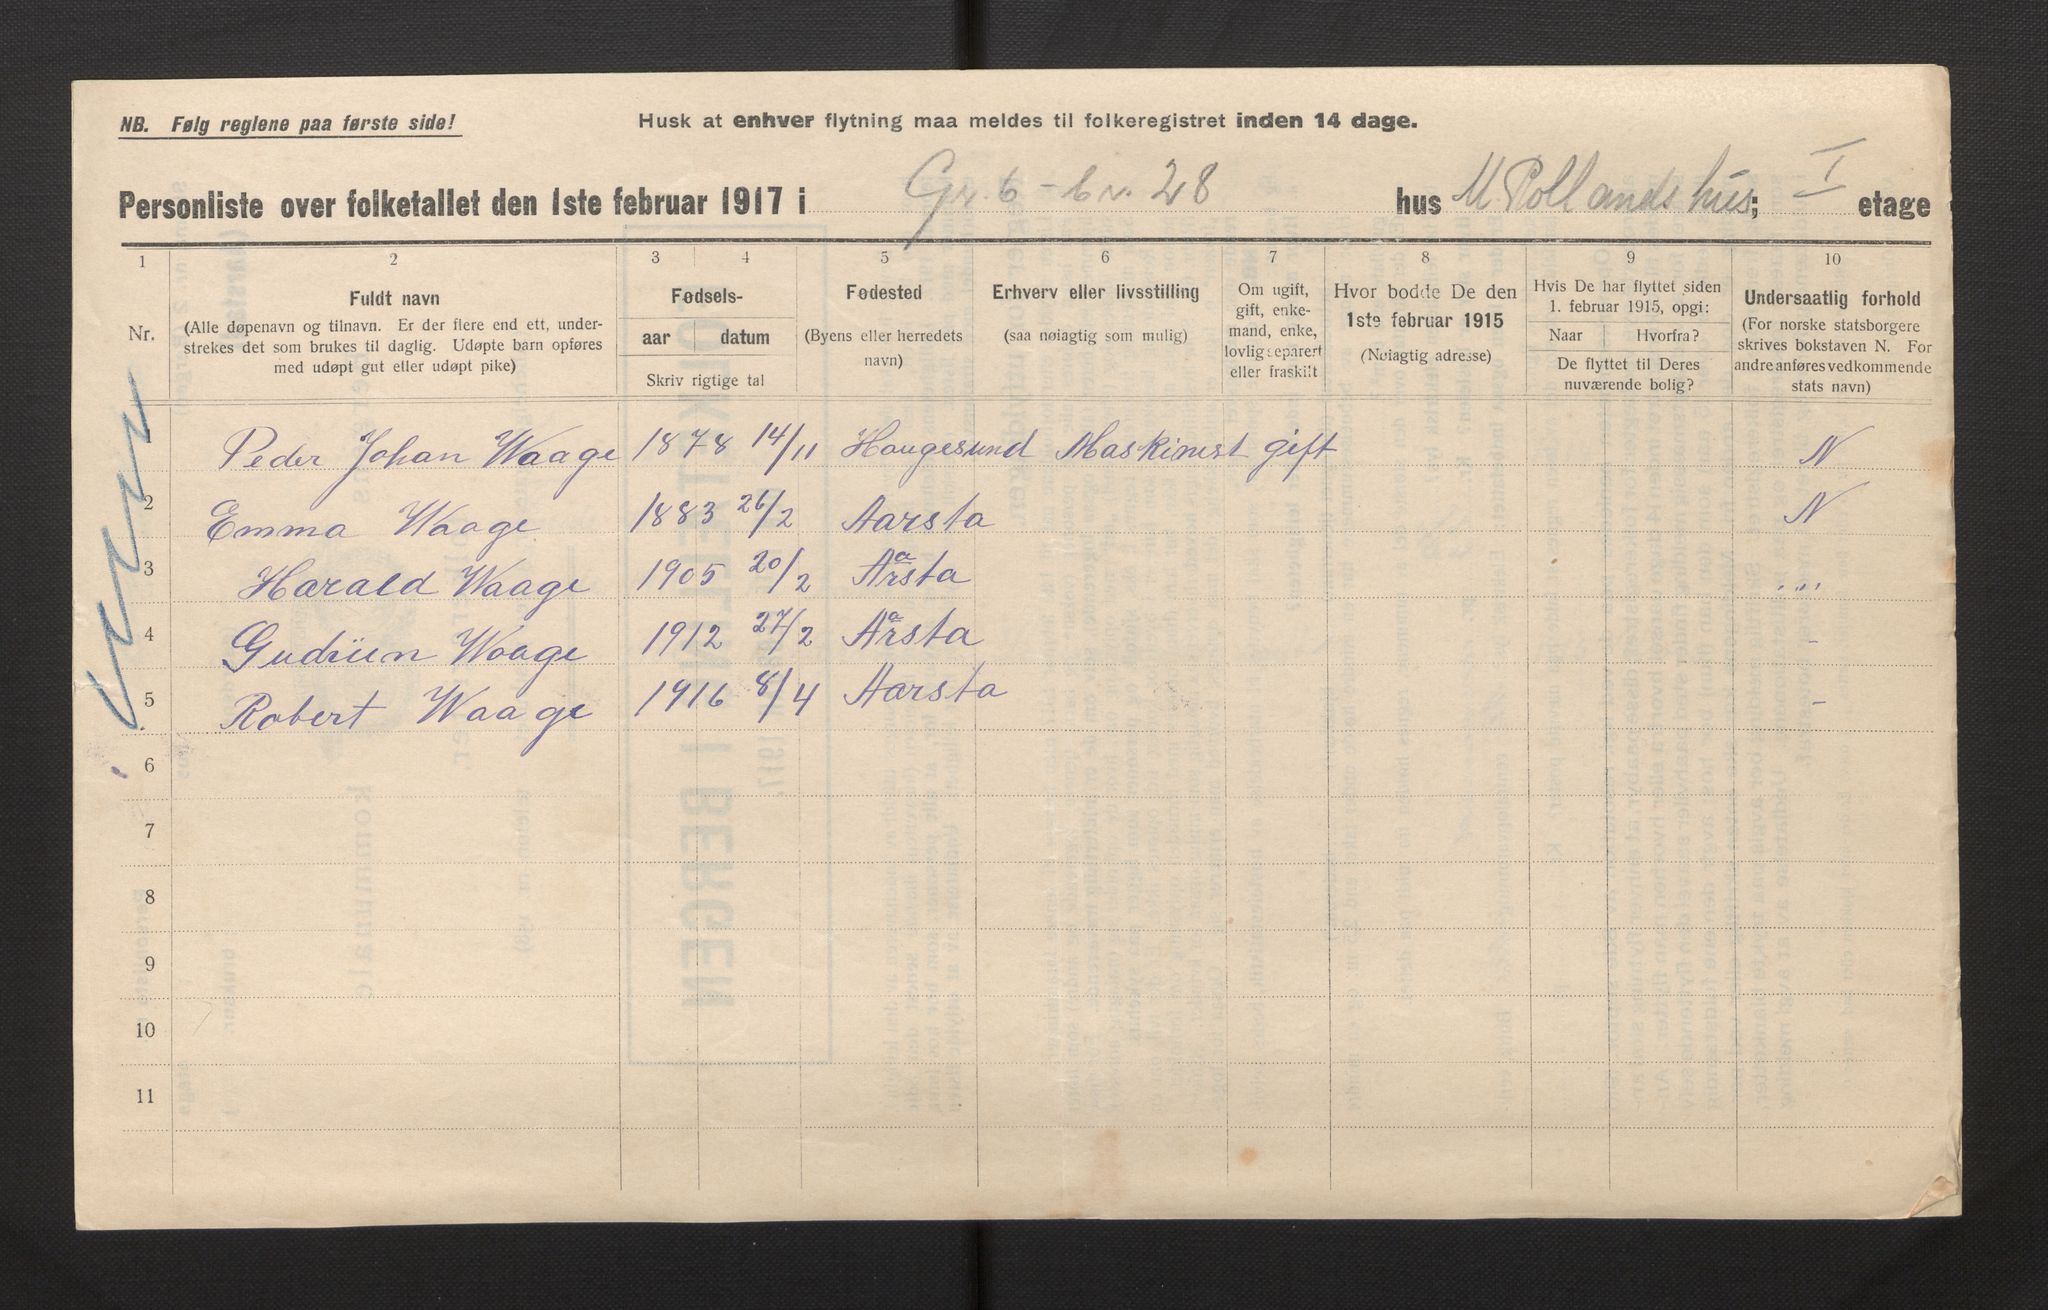 NB. Følg reglene paa første side!
Husk at enhver flytning maa meldes til folkeregistret inden 14 dage.
Personliste over folketallet den 1ste februar 1917 i Gr. 6 - br. 28 hus M Pollands hus; I etage
1 2 3 4 5 6 7 8 9 10
Nr.
Fuldt navn
(Alle døpenavn og tilnavn. Er der flere end ett, under-
strekes det som brukes til daglig. Udøpte barn opføres
med udøpt gut eller udøpt pike)
Fødsels-
aar datum
Skriv rigtige tal
Fødested
(Byens eller herredets
navn)
Erhverv eller livsstilling
(saa nøiagtig som mulig)
Om ugift,
gift, enke-
mand, enke,
lovlig separert
eller fraskilt
Hvor bodde De den
1ste februar 1915
(Nøiagtig adresse)
Hvis De har flyttet siden
1. februar 1915, opgi:
Naar Hvorfra?
De flyttet til Deres
nuværende bolig?
Undersaatlig forhold
(For norske statsborgere
skrives bokstaven N. For
andre anføres vedkommende
stats navn)
1 Peder Johan Waage 1878 14/11 Haugesund Maskinist gift N
2 Emma Waage 1883 26/2 Aarsta N
3 Harald Waage 1905 20/2 Aarsta "
4 Gudrun Waage 1912 27/2 Aarsta -
5 Robert Waage 1916 8/4 Aarsta -
6
7
8
9
10
11